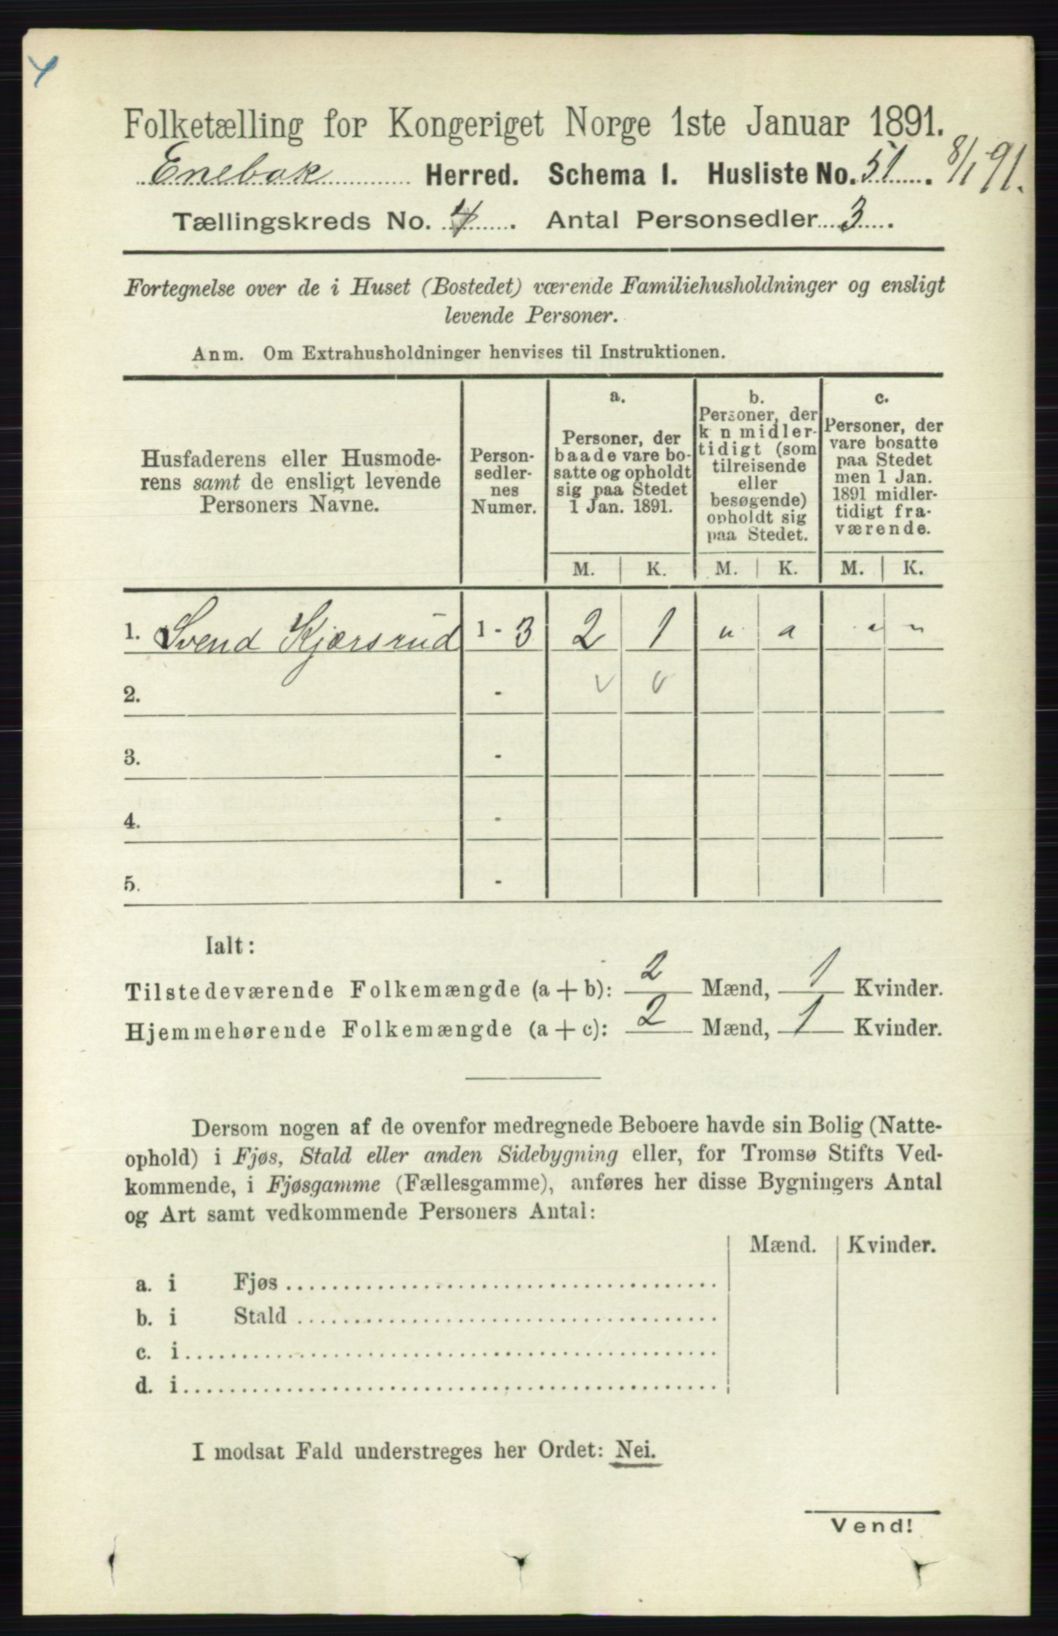 4
Folketælling for Kongeriget Norge 1ste Januar 1891.
Enebak Herred. Schema I. Husliste No. 51. 8/1 91.
Tællingskreds No. 4. Antal Personsedler 3.
Fortegnelse over de i Huset (Bostedet) værende Familiehusholdninger og ensligt
levende Personer.
Anm. Om Extrahusholdninger henvises til Instruktionen.
Husfaderens eller Husmode-
rens samt de ensligt levende
Personers Navne.
Person-
sedler-
nes
Numer.
a.
Personer, der
baade vare bo-
satte og opholdt
sig paa Stedet
1 Jan. 1891.
b.
Personer, der
k n midler-
tidigt (som
tilreisende
eller
besøgende)
opholdt sig
paa Stedet.
c.
Personer, der
vare bosatte
paa Stedet
men 1 Jan.
1891 midler-
tidigt fra-
værende.
M. K. M. K. M. K.
1. Svend Kjærsrud 1 - 3 2 1 " " " "
2. -
3. -
4. -
5. -
Ialt:
Tilstedeværende Folkemængde (a + b): 2 Mænd, 1 Kvinder.
Hjemmehørende Folkemængde (a + c): 2 Mænd, 1 Kvinder.
Dersom nogen af de ovenfor medregnede Beboere havde sin Bolig (Natte-
ophold) i Fjøs, Stald eller anden Sidebygning eller, for Tromsø Stifts Ved-
kommende, i Fjøsgamme (Fællesgamme), anføres her disse Bygningers Antal
og Art samt vedkommende Personers Antal:
Mænd. Kvinder.
a. i Fjøs
b. i Stald
c. i
d. i
I modsat Fald understreges her Ordet: Nei.
Vend!